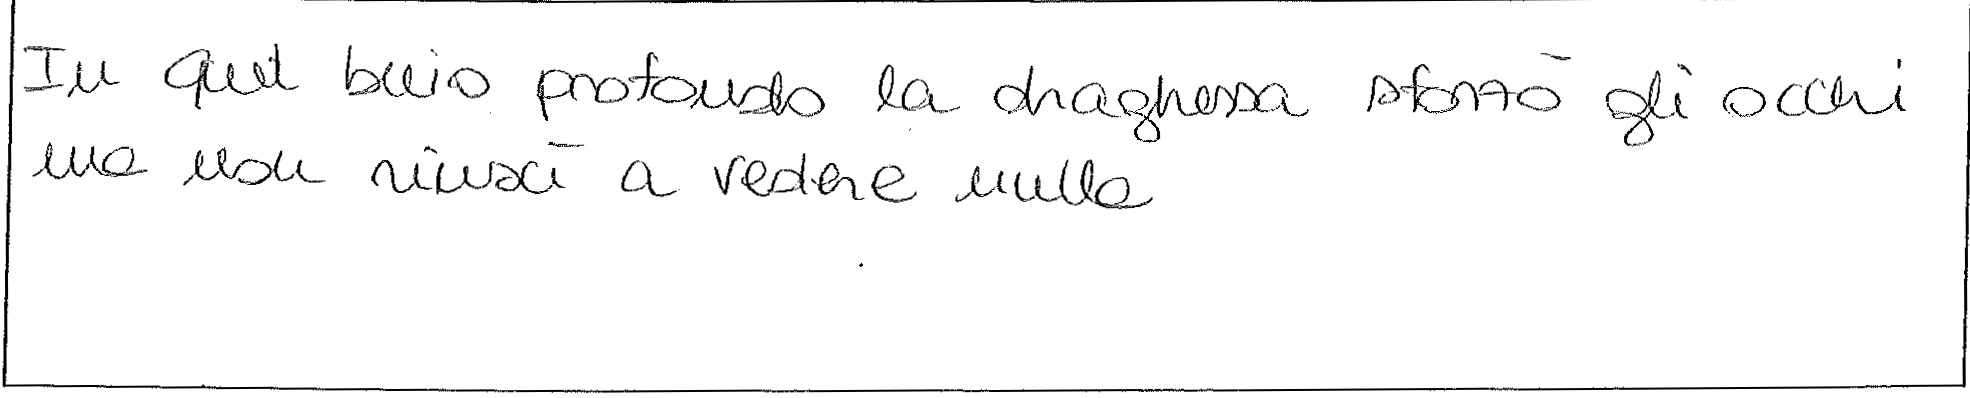 In quel buio profondo la draghessa sforzò gli occhi
ma non riuscì a vedere nulla